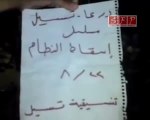 درعا - تسيل
مسلسل
إسقاط النظام
٨/٢٢
تنسيقية تسيل